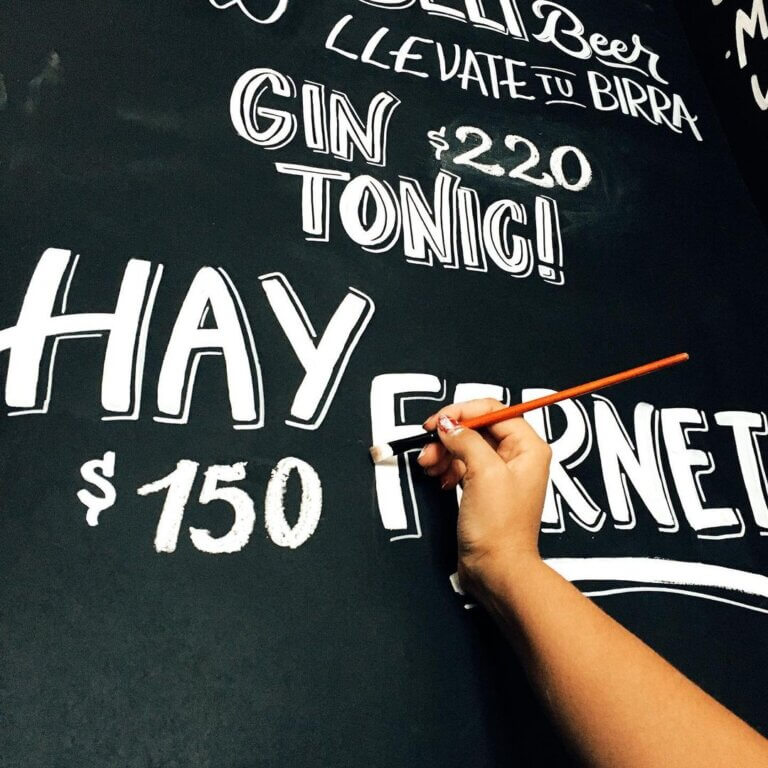 Beer
LLEVATE TU BIRRA
GIN $220
TONIC!
HAY
FERNET
$150